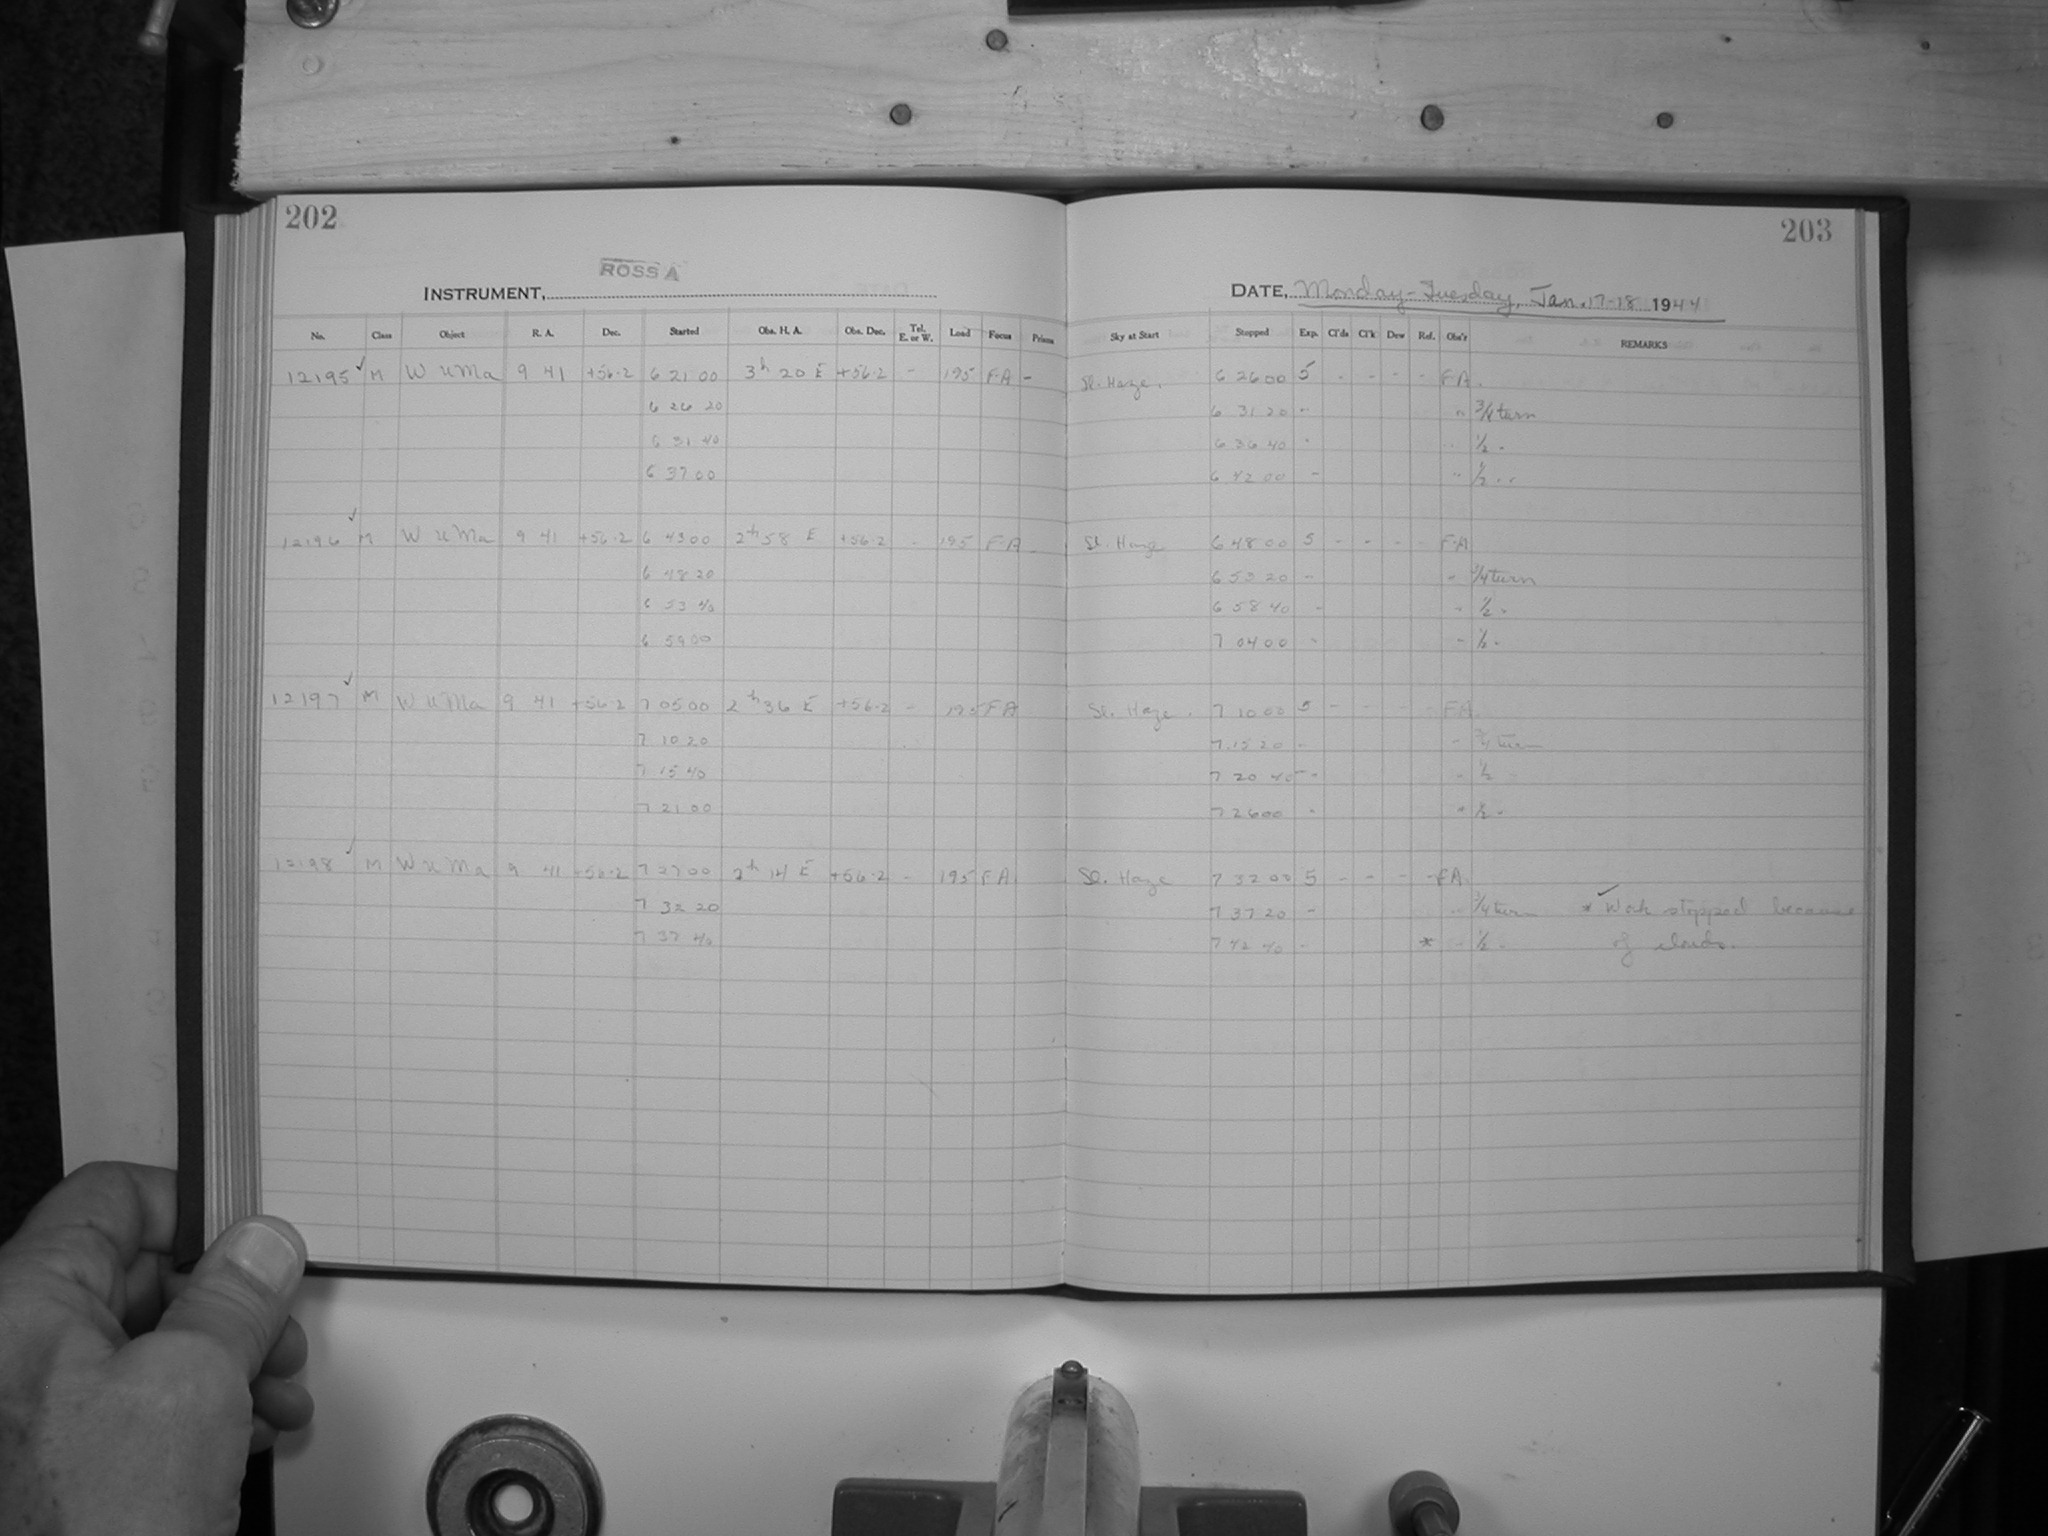 202
203
ROSS A
INSTRUMENT,
DATE, Monday-Tuesday, Jan. 17-18 1944
No. Class Object R. A. Dec. Started Obs. H. A. Obs. Dec. Tel. E. or W. Load Focus Prisms Sky at Start Stopped Exp. Cl'ds Cl'k Dew Ref. Obs'r REMARKS
12195 ✓ M W UMa 9 41 +56.2 6 21 00 3h 20 E +56.2 - 195 FA - Sl. Haze. 6 26 00 5 - - - - FA.
6 26 20 6 31 20 - " 3/4 turn
6 31 40 6 36 40 " " 1/2 "
6 37 00 6 42 00 - " 1/2 "
12196 ✓ M W UMa 9 41 +56.2 6 43 00 2h 58 E +56.2 - 195 FA - Sl. Haze 6 48 00 5 - - - - FA
6 48 20 6 53 20 - " 3/4 turn
6 53 40 6 58 40 - " 1/2 "
6 59 00 7 04 00 - " 1/2 "
12197 ✓ M W UMa 9 41 +56.2 7 05 00 2h 36 E +56.2 - 195 FA Sl. Haze. 7 10 00 5 - - - - FA.
7 10 20 7 15 20 - " 3/4 turn
7 15 40 7 20 40 - " 1/2 "
7 21 00 7 26 00 " " 1/2 "
12198 ✓ M W UMa 9 41 +56.2 7 27 00 2h 14 E +56.2 - 195 FA Sl. Haze 7 32 00 5 - - - - FA.
7 32 20 7 37 20 - " 3/4 turn * ✓ Work stopped because
7 37 40 7 42 40 - * " 1/2 " of clouds.